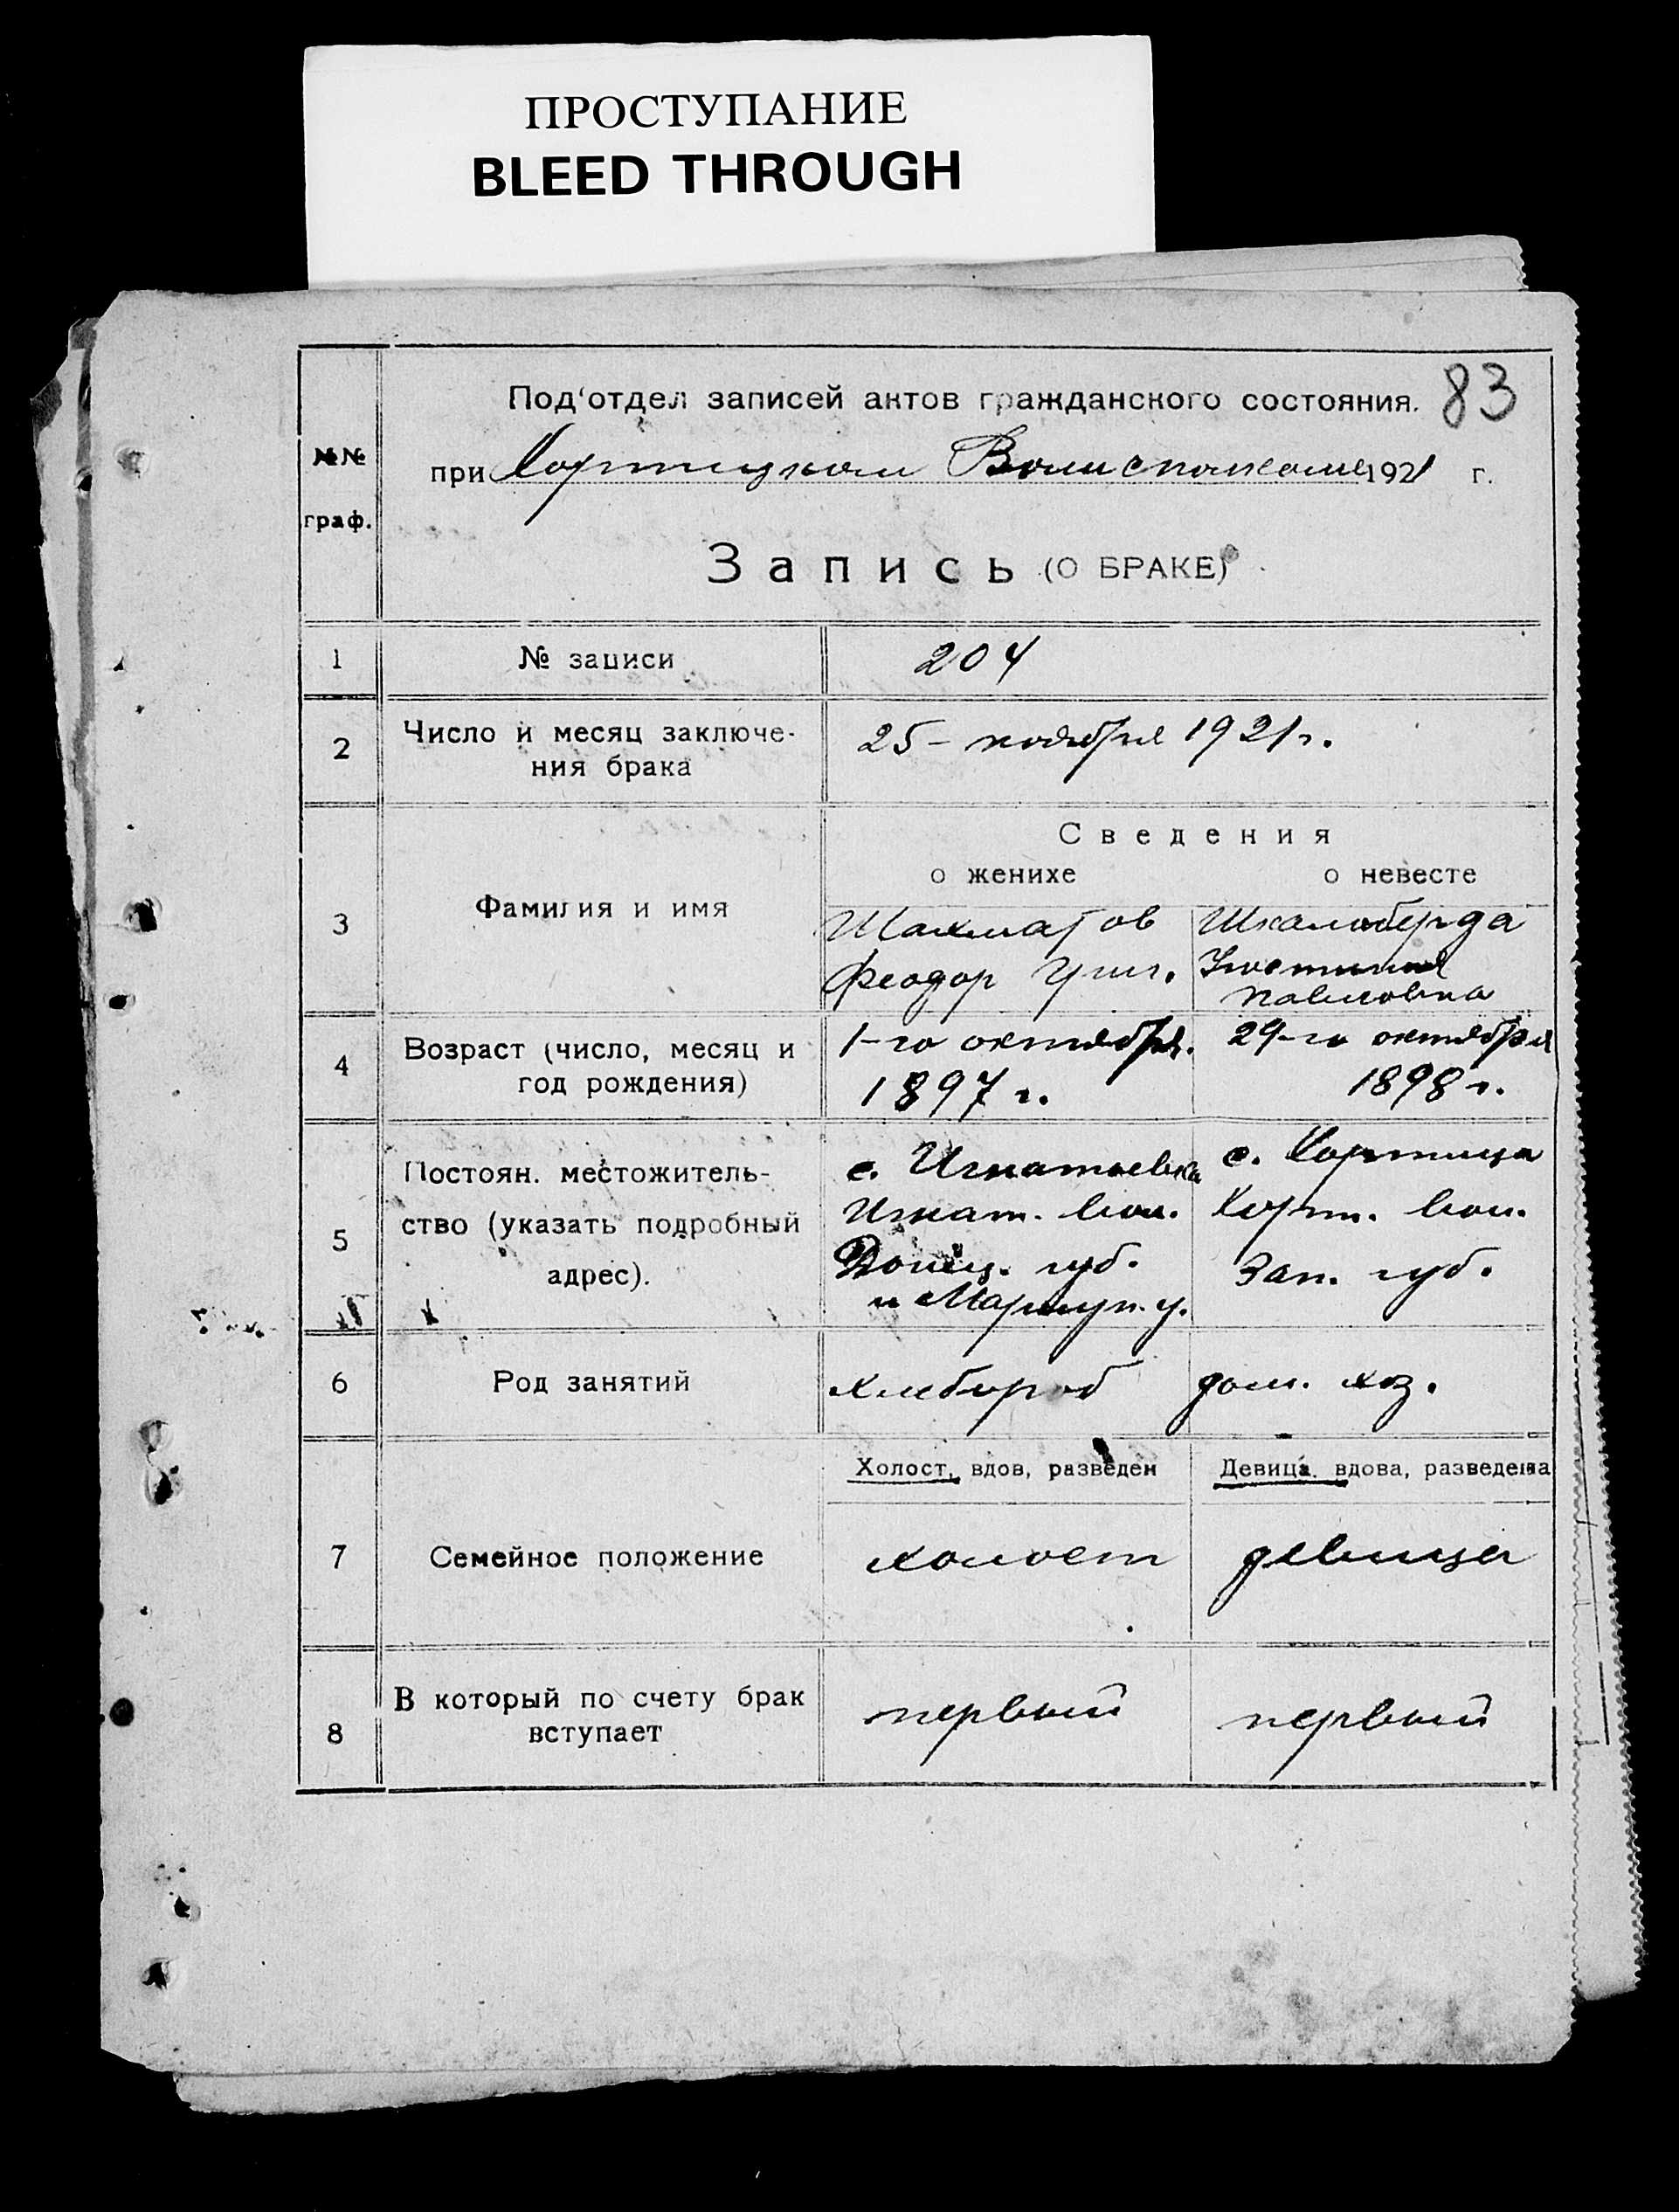 ПРОСТУПАНИЕ
BLEED THROUGH
83
Под‘отдел записей актов гражданского состояния.
№№ граф.
при Хортицком Волисполкоме 1921 г.
Запись (О БРАКЕ)
1 № записи 204
2 Число и месяц заключе-
ния брака
25 – ноября 1921 г.
Сведения
о женихе о невесте
3 Фамилия и имя
Шахматов Шкалоберда
Феодор Григ. Устиния
Павловна
4 Возраст (число, месяц и
год рождения)
1-го октября. 29-го октября
1897 г. 1898 г.
5 Постоян. местожитель-
ство (указать подробный
адрес).
с. Игнатьевка с. Хортица
Игнат. вол. Хорт. вол.
Донец. губ. Зап. губ.
и Мариуп. у.
6 Род занятий хлебороб дом. хоз.
Холост, вдов, разведен Девица, вдова, разведена
7 Семейное положение холост девица
8 В который по счету брак
вступает
первый первый